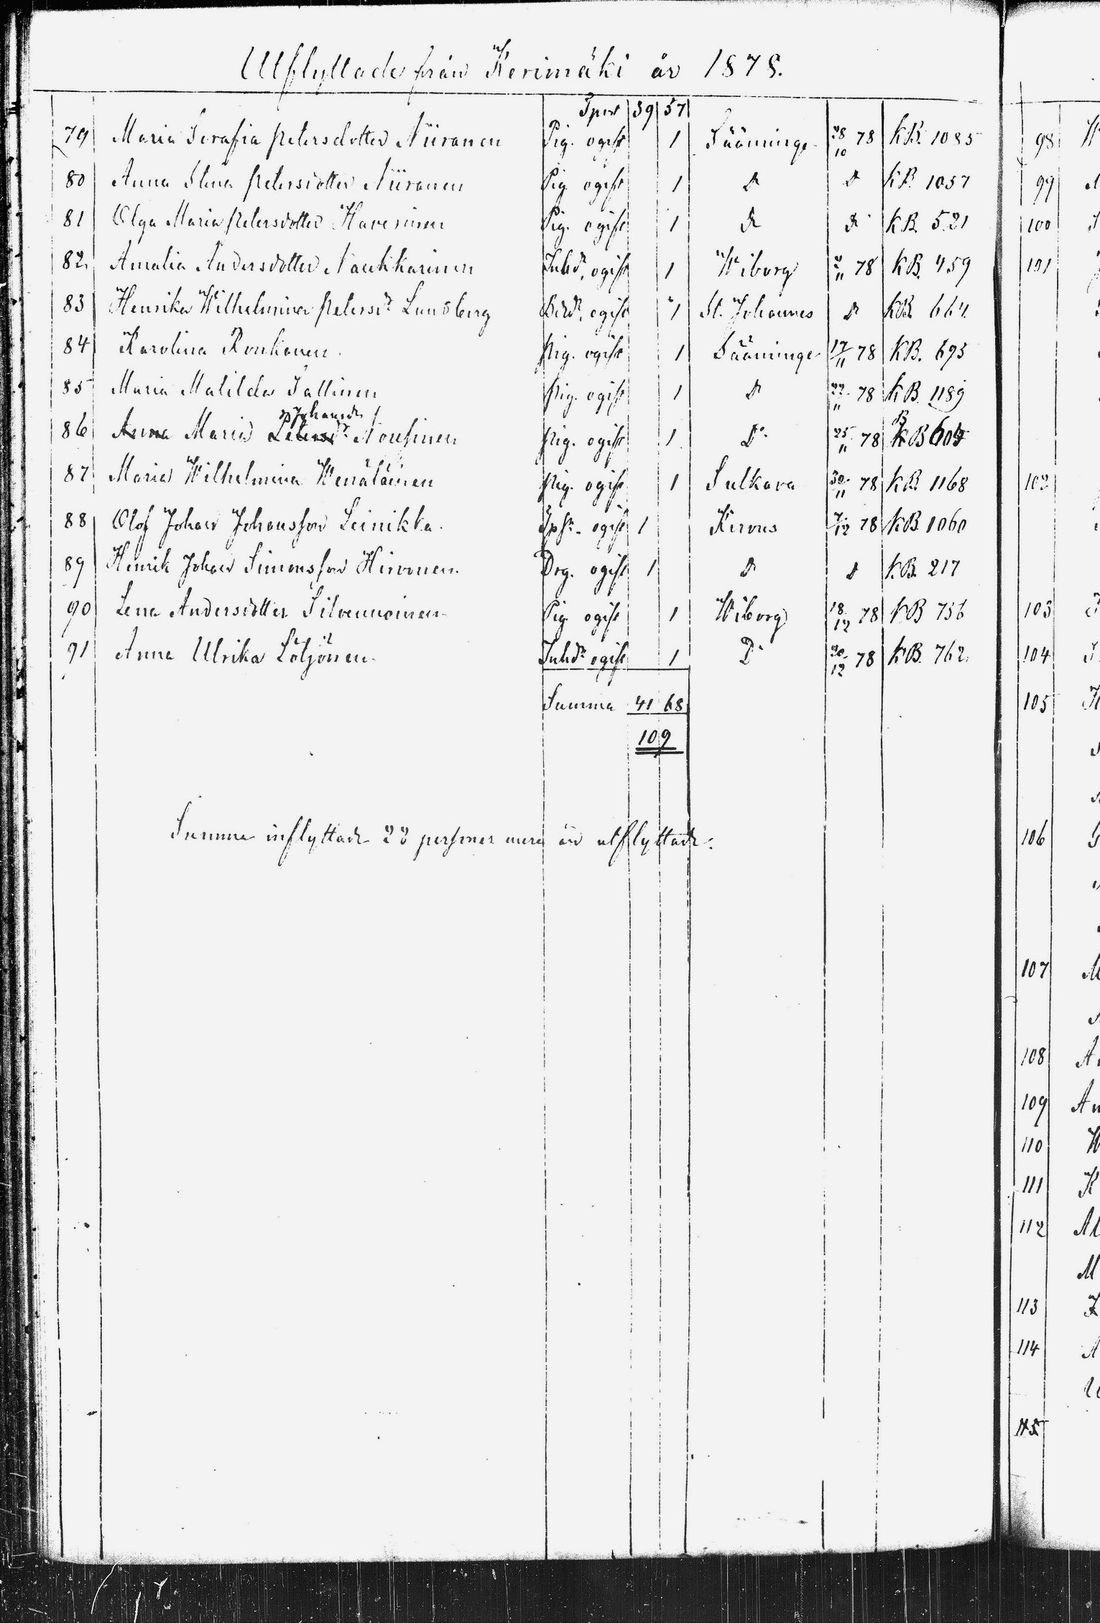 Utflyttade från Kerimäki år 1878.
Tprt 39 57
79 Maria Serafia Petersdotter Niiranen Pig. ogift 1 Sääminge 28/10 78 KB. 1085
80 Anna Stina Petersdotter Niiranen Pig. ogift 1 Do Do KB. 1057
81 Olga Maria Petersdotter Haverinen Pig. ogift 1 Do Do KB. 521
82. Amalia Andersdotter Naukkarinen Inhdr. ogift 1 Wiborg 78 KB. 459
83 Henrika Wilhelmina Petersdr Lundberg ogift 1 St. Johannes Do KB. 664
84 Karolina Ronkanen. Pig. ogift 1 Sääminge 17/11 78 KB. 695
85 Maria Matilda Tallinen Pig. ogift 1 Do 78 KB. 1189
86 Anna Maria Petersdr Johansdr Nousinen Pig. ogift 1 Do 25/11 78 KB 605
87 Maria Wilhelmina Wenäläinen Pig. ogift 1 Sulkava 30/11 78 KB. 1168
88 Olof Johan Johansson Leinikka. ogift 1 Kirvus 7/12 78 KB 1060
89 Henrik Johan Simonsson Hirvonen. Drg. ogift 1 Do Do KB. 217
90 Lena Andersdotter Silvennoinen Pig. ogift 1 Wiborg 18/12 78 KB 756
91 Anna Ulrika Löljönen. Inhdr ogift 1 Do 30/12 78 KB. 762.
Summa 41 68
109
Summa inflyttade 22 personer mera än utflyttade.
98
99
100
101
102
103
104
105
106
107
108
109
110
111
112
113
114
115